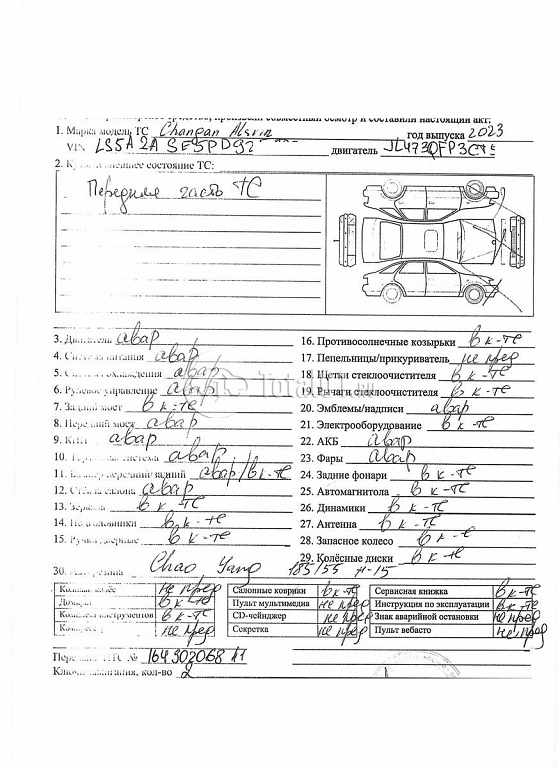 совместный осмотр и составили настоящий акт:
1. Марка модель ТС Changan Alsvin год выпуска 2023
VIN LS5A2A SE5PD92 двигатель JL473QFP3
2. внешнее состояние ТС:
Передняя часть ТС
3. Двигатель авар 16. Противосолнечные козырьки в к-те
4. Система питания авар 17. Пепельницы/прикуриватель не пред
5. Система охлаждения авар 18. Щетки стеклоочистителя в к-те
6. Рулевое управление авар 19. Рычаги стеклоочистителя в к-те
7. Задний мост в к-те 20. Эмблемы/надписи авар
8. Передний мост авар 21. Электрооборудование в к-те
9. КПП авар 22. АКБ авар
10. система авар 23. Фары авар
11. Бампер передний/задний авар/в к-те 24. Задние фонари в к-те
12. Стёкла салона авар 25. Автомагнитола в к-те
13. Зеркала в к-те 26. Динамики в к-те
14. в к-те 27. Антенна в к-те
15. Ручки дверные в к-те 28. Запасное колесо в к-те
29. Колёсные диски в к-те
30. Chao Yang 185/55 R-15
Колпаки колёс не пред Салонные коврики в к-те Сервисная книжка в к-те
Домкрат в к-те Пульт мультимедиа не пред Инструкция по эксплуатации в к-те
Комплект инструментов в к-те CD-чейнджер не пред Знак аварийной остановки не пред
не пред Секретка не пред Пульт вебасто не пред
ПТС № 164302068
Ключи зажигания, кол-во 2